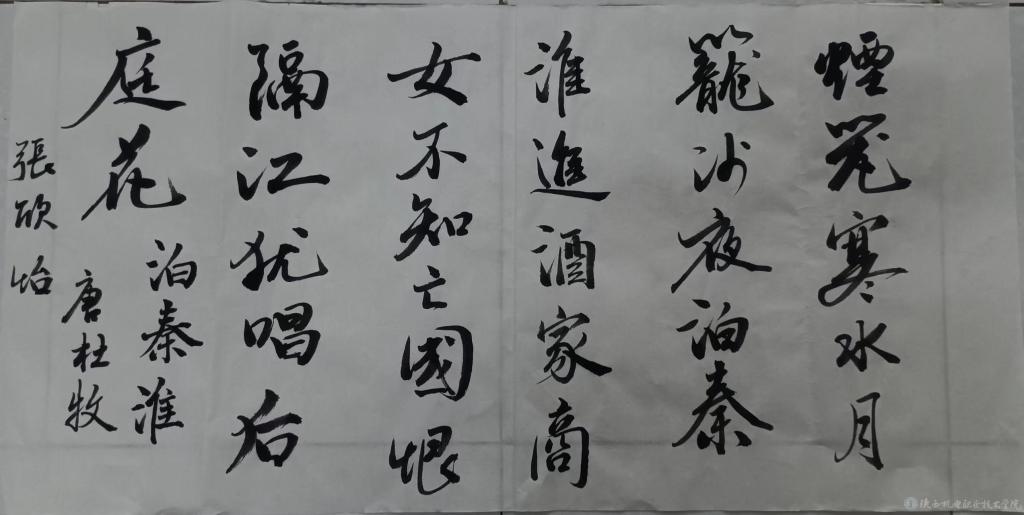 煙笼寒水月
籠沙夜泊秦
淮進酒家商
女不知亡國恨
隔江犹唱后
庭花
泊秦淮
唐杜牧
張欣怡
陕西机电职业技术学院